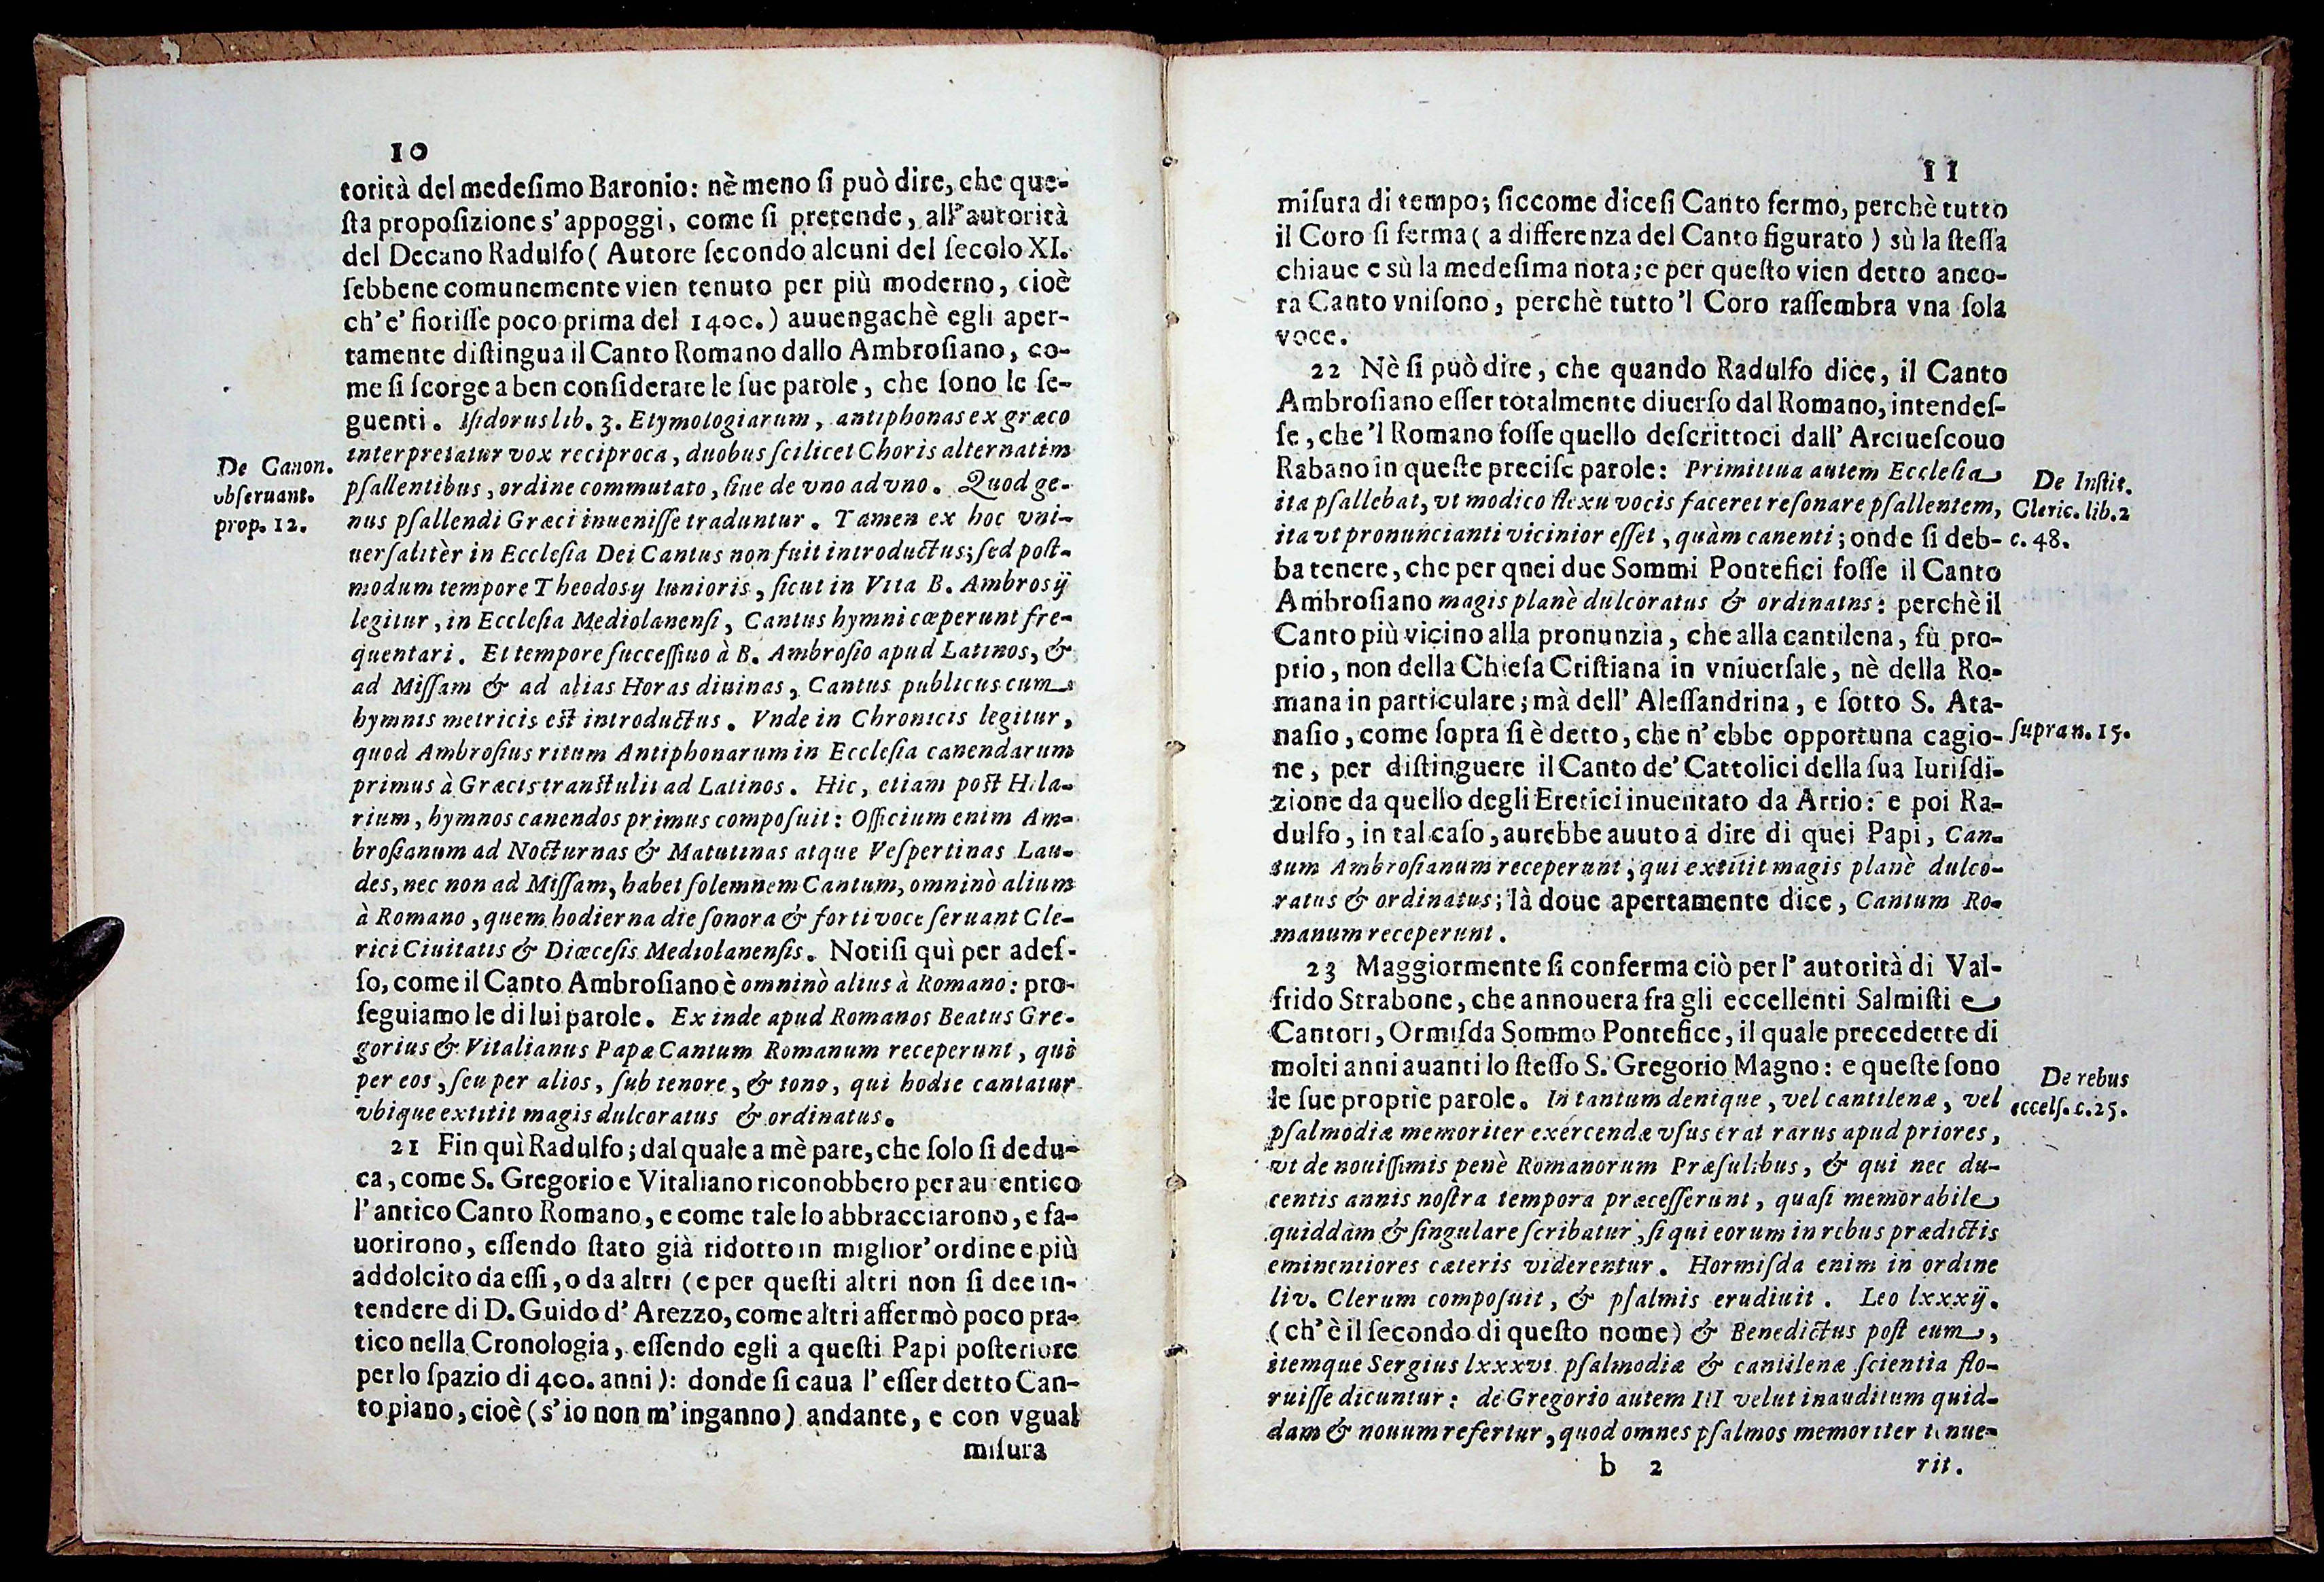 10
torità del medeſimo Baronio: nè meno ſi può dire, che que-
ſta propoſizione s'appoggi, come ſi pretende, all'autorità
del Decano Radulfo (Autore ſecondo alcuni del ſecolo XI.
ſebbene comunemente vien tenuto per più moderno, cioè
ch'e' fioriſſe poco prima del 1400.) auuengachè egli aper-
tamente diſtingua il Canto Romano dallo Ambroſiano, co-
me ſi ſcorge a ben conſiderare le ſue parole, che ſono le ſe-
guenti. Iſidorus lib. 3. Etymologiarum, antiphonas ex græco
interpretatur vox reciproca, duobus ſcilicet Choris alternatim
De Canon.
obſeruant.
prop. 12.
pſallentibus, ordine commutato, ſiue de vno ad vno. Quod ge-
nus pſallendi Græci inueniſſe traduntur. Tamen ex hoc vni-
uerſalitèr in Eccleſia Dei Cantus non fuit introductus; ſed poſt-
modum tempore Theodosÿ Iunioris, ſicut in Vita B. Ambrosÿ
legitur, in Eccleſia Mediolanenſi, Cantus hymni cœperunt fre-
quentari. Et tempore ſucceſſiuo à B. Ambroſio apud Latinos, &
ad Miſſam & ad alias Horas diuinas, Cantus publicus cum
hymnis metricis eſt introductus. Vnde in Chronicis legitur,
quod Ambroſius ritum Antiphonarum in Eccleſia canendarum
primus à Græcis tranſtulit ad Latinos. Hic, etiam poſt Hila-
rium, hymnos canendos primus compoſuit: Officium enim Am-
broſianum ad Nocturnas & Matutinas atque Veſpertinas Lau-
des, nec non ad Miſſam, habet ſolemnem Cantum, omninò alium
à Romano, quem hodierna die ſonora & forti voce ſeruant Cle-
rici Ciuitatis & Diœceſis Mediolanenſis. Notiſi quì per adeſ-
ſo, come il Canto Ambroſiano è omninò alius à Romano: pro-
ſeguiamo le di lui parole. Ex inde apud Romanos Beatus Gre-
gorius & Vitalianus Papæ Cantum Romanum receperunt, qui
per eos, ſeu per alios, ſub tenore, & tono, qui hodie cantatur
vbique extitit magis dulcoratus & ordinatus.
21 Fin quì Radulfo; dal quale a mè pare, che ſolo ſi dedu-
ca, come S. Gregorio e Vitaliano riconobbero per au entico
l'antico Canto Romano, e come tale lo abbracciarono, e fa-
uorirono, eſſendo ſtato già ridotto in miglior' ordine e più
addolcito da eſſi, o da altri (e per queſti altri non ſi dee in-
tendere di D. Guido d' Arezzo, come altri affermò poco pra-
tico nella Cronologia, eſſendo egli a queſti Papi poſteriore
per lo ſpazio di 400. anni): donde ſi caua l'eſſer detto Can-
to piano, cioè (s'io non m'inganno) andante, e con vgual
miſura
11
miſura di tempo; ſiccome diceſi Canto fermo, perchè tutto
il Coro ſi ferma (a differenza del Canto figurato) sù la ſteſſa
chiaue e sù la medeſima nota; e per queſto vien detto anco-
ra Canto vniſono, perchè tutto 'l Coro raſſembra vna ſola
voce.
22 Nè ſi può dire, che quando Radulfo dice, il Canto
Ambroſiano eſſer totalmente diuerſo dal Romano, intendeſ-
ſe, che 'l Romano foſſe quello deſcrittoci dall' Arciueſcouo
Rabano in queſte preciſe parole: Primitiua autem Eccleſia
ita pſallebat, vt modico flexu vocis faceret reſonare pſallentem,
ita vt pronuncianti vicinior eſſet, quàm canenti; onde ſi deb-
De Inſtit.
Cleric. lib. 2
c. 48.
ba tenere, che per qnei due Sommi Pontefici foſſe il Canto
Ambroſiano magis planè dulcoratus & ordinatus: perchè il
Canto più vicino alla pronunzia, che alla cantilena, fù pro-
prio, non della Chieſa Criſtiana in vniuerſale, nè della Ro-
mana in particulare; mà dell' Aleſſandrina, e ſotto S. Ata-
naſio, come ſopra ſi è detto, che n' ebbe opportuna cagio-
ſupra n. 15.
ne, per diſtinguere il Canto de' Cattolici della ſua Iuriſdi-
zione da quello degli Eretici inuentato da Arrio: e poi Ra-
dulfo, in tal caſo, aurebbe auuto a dire di quei Papi, Can-
tum Ambroſianum receperunt, qui extitit magis planè dulco-
ratus & ordinatus; là doue apertamente dice, Cantum Ro-
manum receperunt.
23 Maggiormente ſi conferma ciò per l'autorità di Val-
frido Strabone, che annouera fra gli eccellenti Salmiſti e
Cantori, Ormiſda Sommo Pontefice, il quale precedette di
molti anni auanti lo ſteſſo S. Gregorio Magno: e queſte ſono
le ſue proprie parole. In tantum denique, vel cantilenæ, vel
De rebus
eccelſ. c. 25.
pſalmodiæ memoriter exercendæ vſus erat rarus apud priores,
vt de nouiſſimis penè Romanorum Præſulibus, & qui nec du-
centis annis noſtra tempora præceſſerunt, quaſi memorabile
quiddam & ſingulare ſcribatur, ſi qui eorum in rebus prædictis
eminentiores cæteris viderentur. Hormiſda enim in ordine
liv. Clerum compoſuit, & pſalmis erudiuit. Leo lxxxij.
(ch'è il ſecondo di queſto nome) & Benedictus poſt eum,
itemque Sergius lxxxvi pſalmodiæ & cantilenæ ſcientia flo-
ruiſſe dicuntur: de Gregorio autem III velut inauditum quid-
dam & nouum refertur, quod omnes pſalmos memoriter tenue-
b 2
rit.